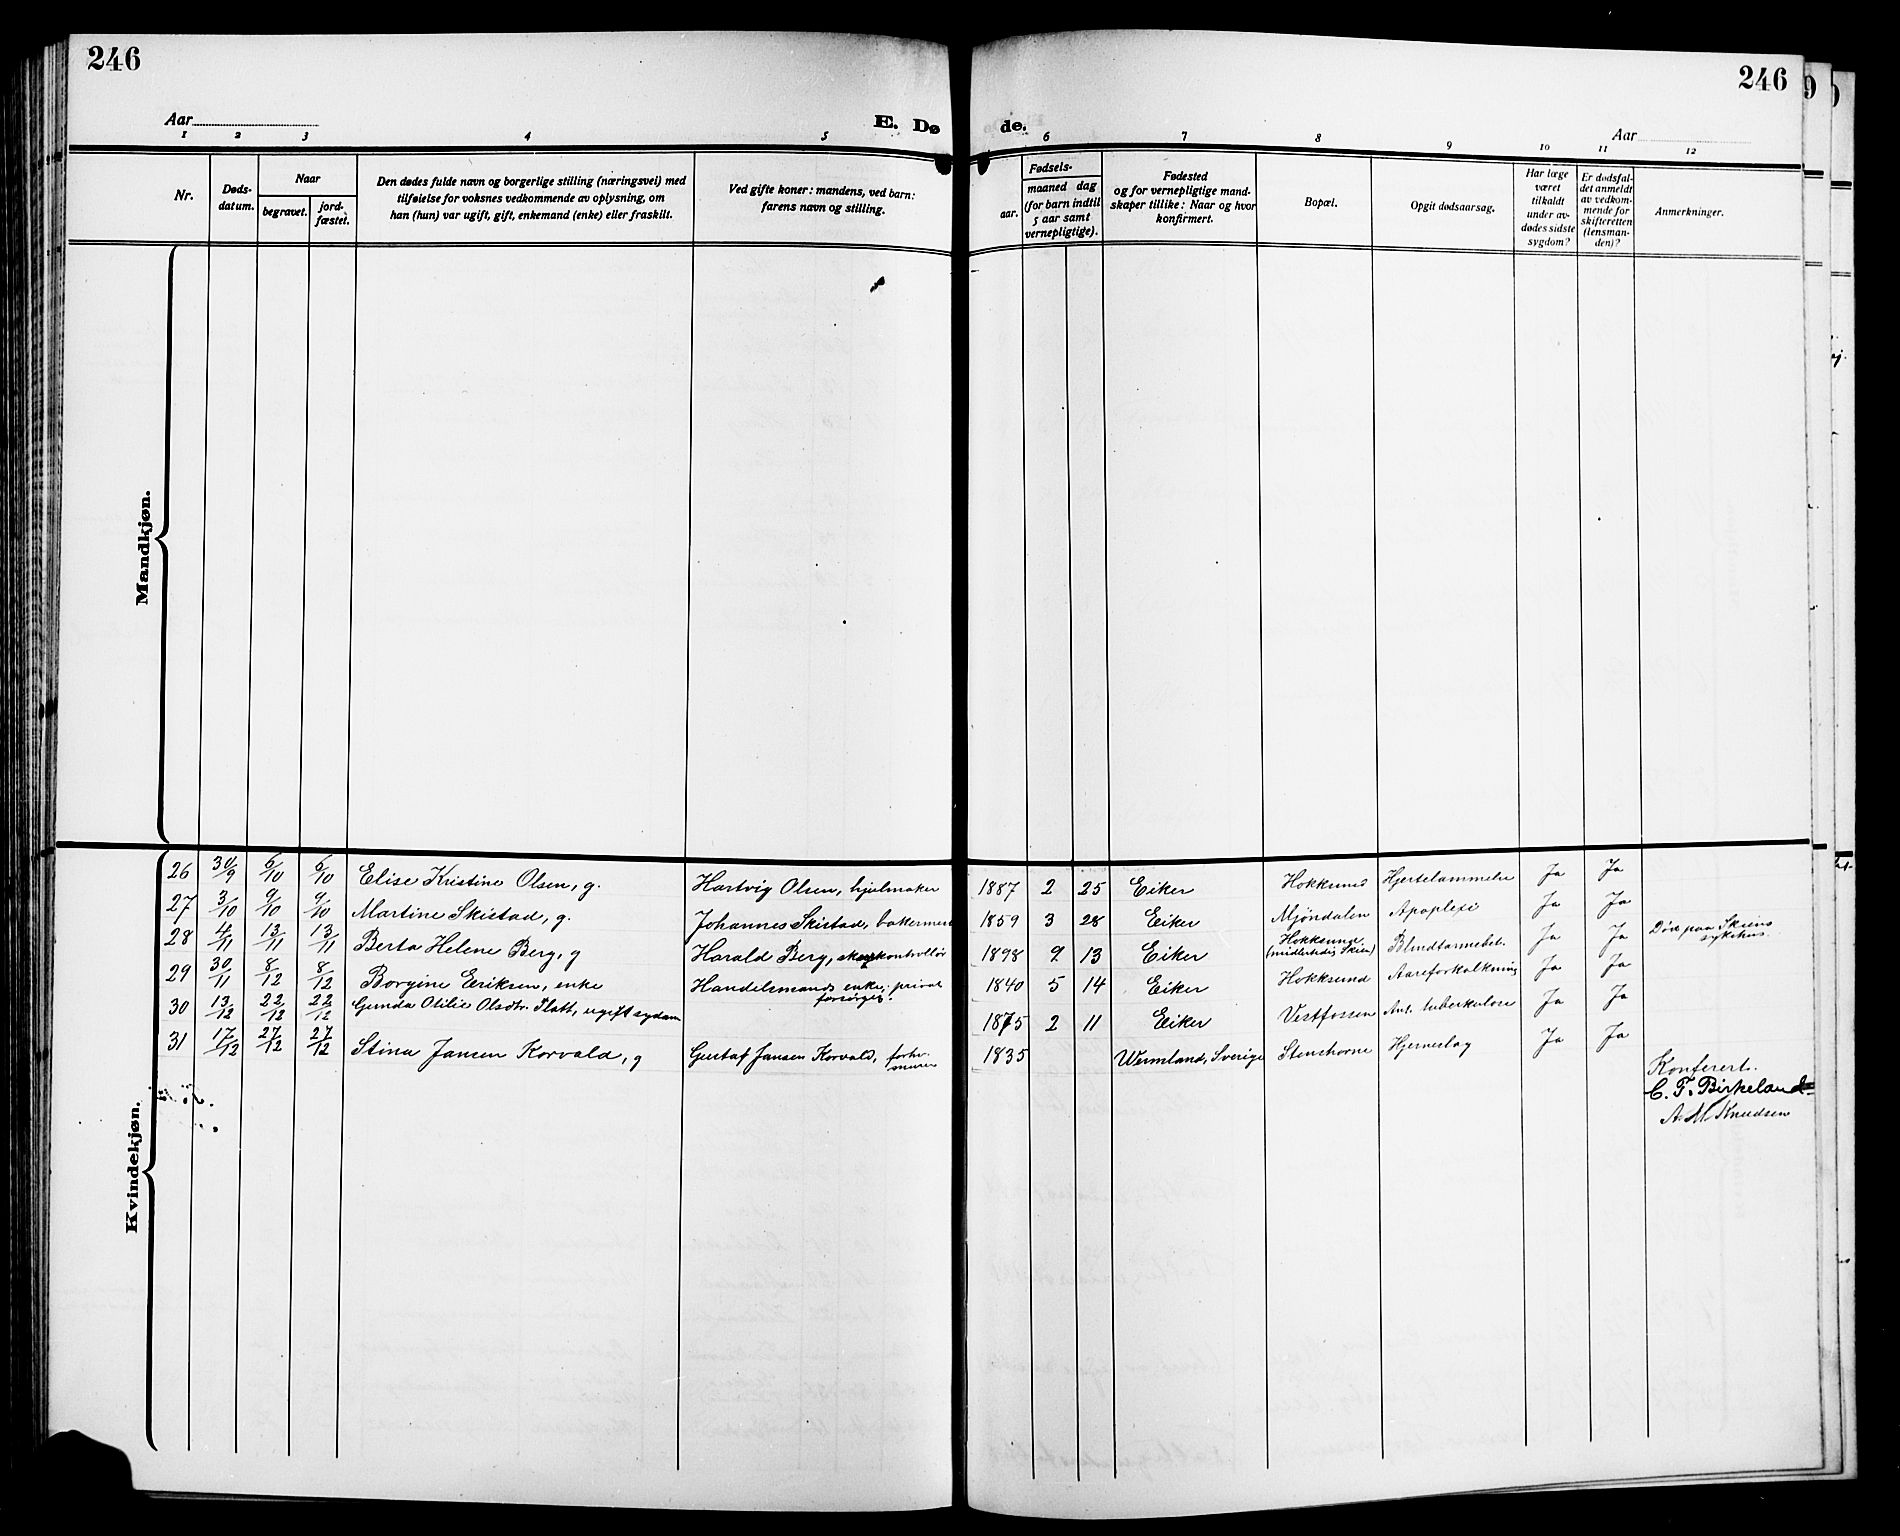 246
246
Aar
E. Dø
de.
Aar
1 2 3 4 5 6 7 8 9 10 11 12
Nr.
Døds-
datum.
Naar
begravet.
jord-
fæstet.
Den dødes fulde navn og borgerlige stilling (næringsvei) med
tilføielse for voksnes vedkommende av oplysning, om
han (hun) var ugift, gift, enkemand (enke) eller fraskilt.
Ved gifte koner: mandens, ved barn:
farens navn og stilling.
Fødsels-
aar.
maaned dag
(for barn indtil
5 aar samt
vernepligtige).
Fødested
og for vernepligtige mand-
skaper tillike: Naar og hvor
konfirmert.
Bopæl.
Opgit dødsaarsag.
Har læge
været
tilkaldt
under av-
dødes sidste
sygdom?
Er dødsfal-
det anmeldt
av vedkom-
mende for
skifteretten
(lensman-
den)?
Anmerkninger.
Mandkjøn.
Kvindekjøn.
26 30/9 6/10 6/10 Elise Kristine Olsen, g. Hartvig Olsen, hjulmaker 1887 2 25 Eiker Hokksund Hjertelammelse Ja Ja
27 3/10 9/10 9/10 Martine Skistad, g. Johannes Skistad, bakermest 1859 3 28 Eiker Mjöndalen Apoplexi Ja Ja
28 4/11 13/11 13/11 Berta Helene Berg, g Harald Berg, kontrollör 1898 9 13 Eiker Hokksund (midlertidig Skien) Blindtarmsbet. Ja Ja Död paa Skiens sykehus.
29 30/11 8/12 8/12 Borgine Eriksen, enke Handelsmands enke, privat forsörget. 1840 5 14 Eiker Hokksund Aareforkalkning Ja Ja
30 13/12 22/12 22/12 Gunda Otilie Olsdtr. Flatt, ugift sydame 1875 2 11 Eiker Vestfossen tuberkulose Ja Ja
31 17/12 27/12 27/12 Stina Jansen Korvald, g Gustaf Jansen Korvald, forhv. murer 1835 Wermland, Sverige Stenshorne Hjerneslag Ja Ja
Konferert.
C. F. Birkeland
A. M. Knudsen